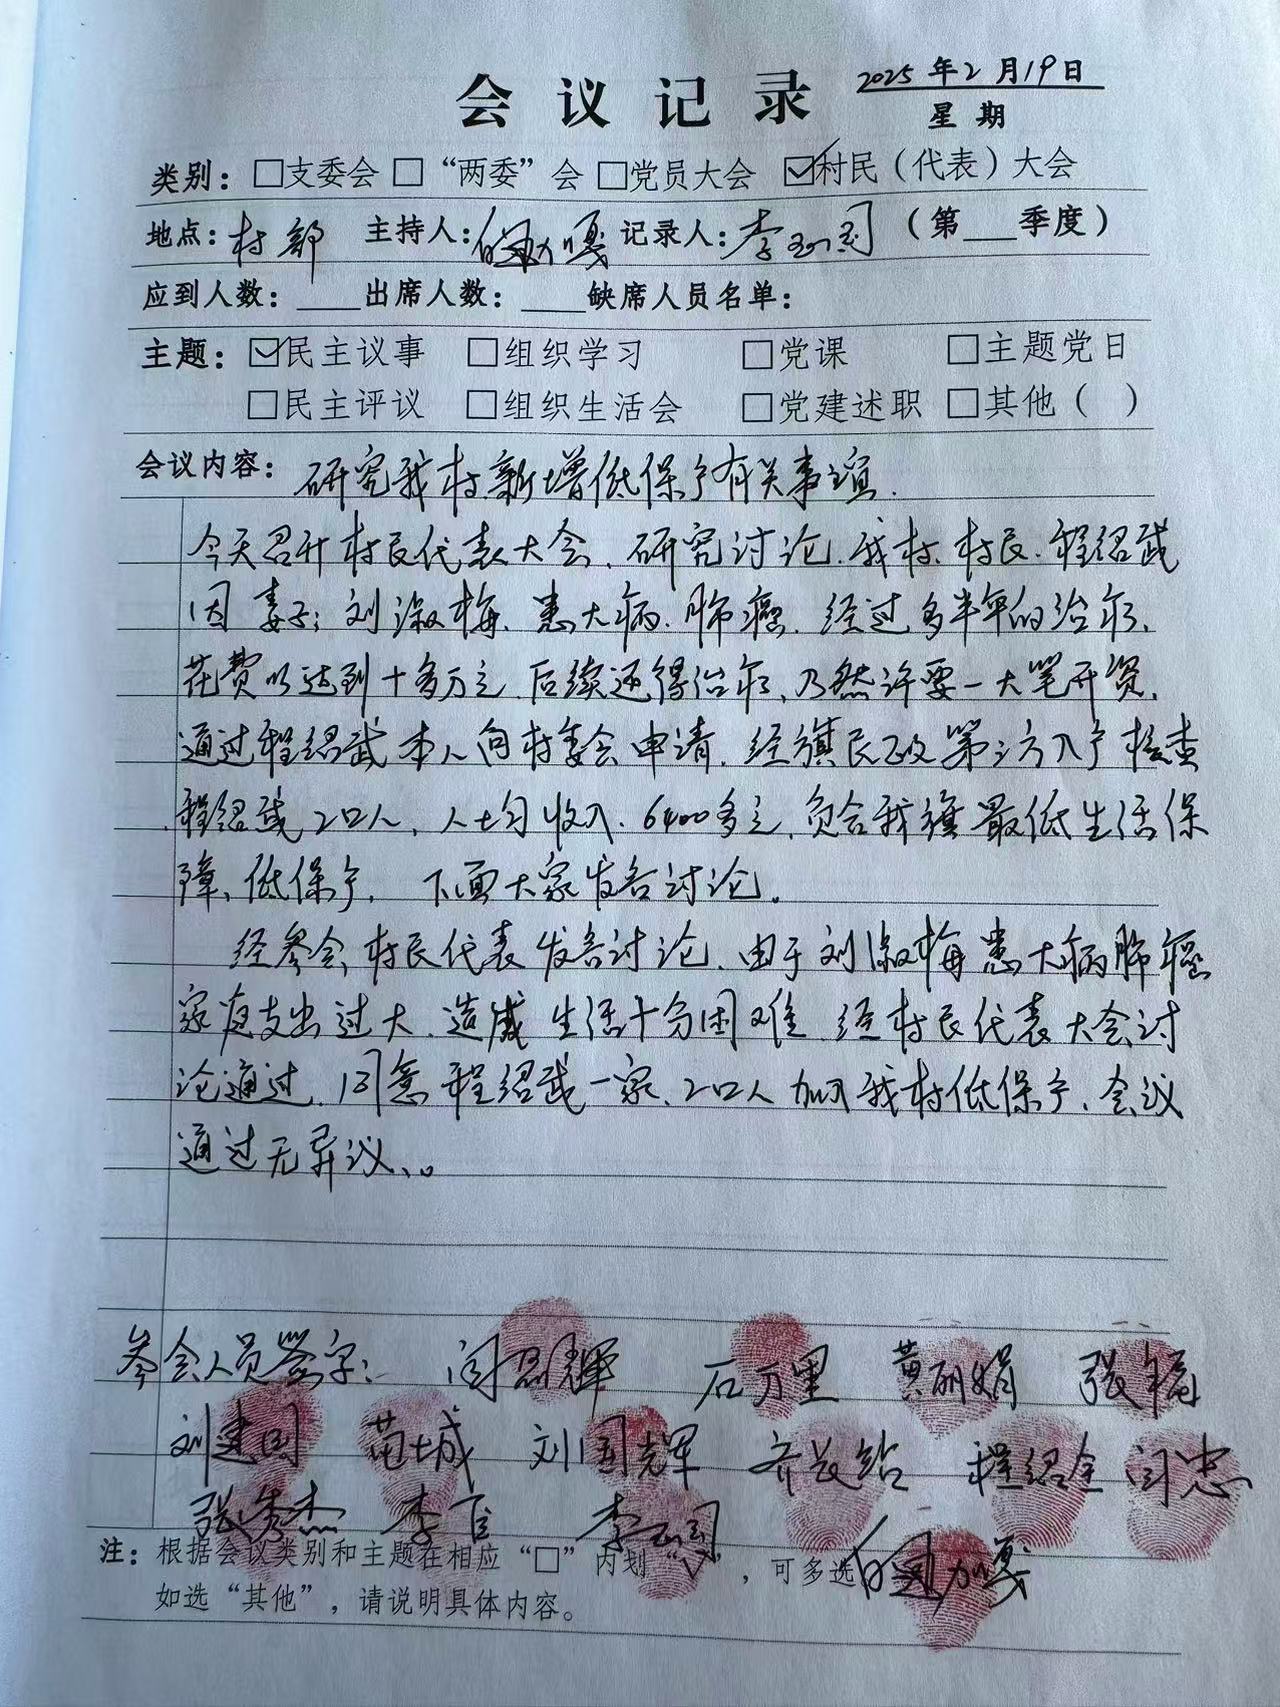 会议记录
2025年2月19日
星期
类别：□支委会 □“两委”会 □党员大会 ☑村民（代表）大会
地点：村部 主持人：白嘎 记录人：李玉国（第___季度）
应到人数：____出席人数：____缺席人员名单：
主题：☑民主议事 □组织学习 □党课 □主题党日
□民主评议 □组织生活会 □党建述职 □其他（ ）
会议内容：研究我村新增低保户有关事谊.
今天召开村民代表大会、研究讨论.我村.村民.程绍武
因妻子；刘淑梅、患大病.肺癌.经过多半年的治疗、
花费以达到十多万元.后续还得治疗、乃然许要一大笔开资、
通过程绍武本人向村委会申请.经旗民政第三方入户核查
程绍武2口人、人均收入.6400多元.负合我旗最低生活保
障、低保户. 下面大家发言讨论。
经参会村民代表发言讨论、由于刘淑梅患大病肺癌
家庭支出过大、造成生活十分困难.经村民代表大会讨
论通过.同意程绍武一家、2口人加入我村低保户、会议
通过无异议、。
参会人员签字： 闫照辉 石万里 黄丽娟 张福
刘建国 苗城 刘国辉 齐长站 程绍全 闫忠
张秀杰 李官 李玉国
注：根据会议类别和主题在相应“□”内划“√”，可多选
如选“其他”，请说明具体内容。